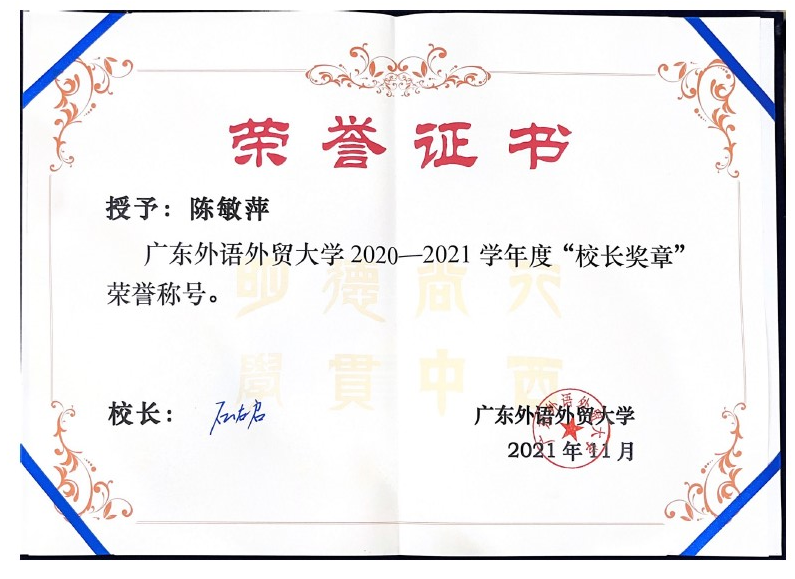 荣誉证书
授予：陈敏萍
广东外语外贸大学 2020—2021 学年度“校长奖章”
荣誉称号。
明德尚行
學貫中西
校长：
广东外语外贸大学
2021 年 11 月
广东外语外贸大学